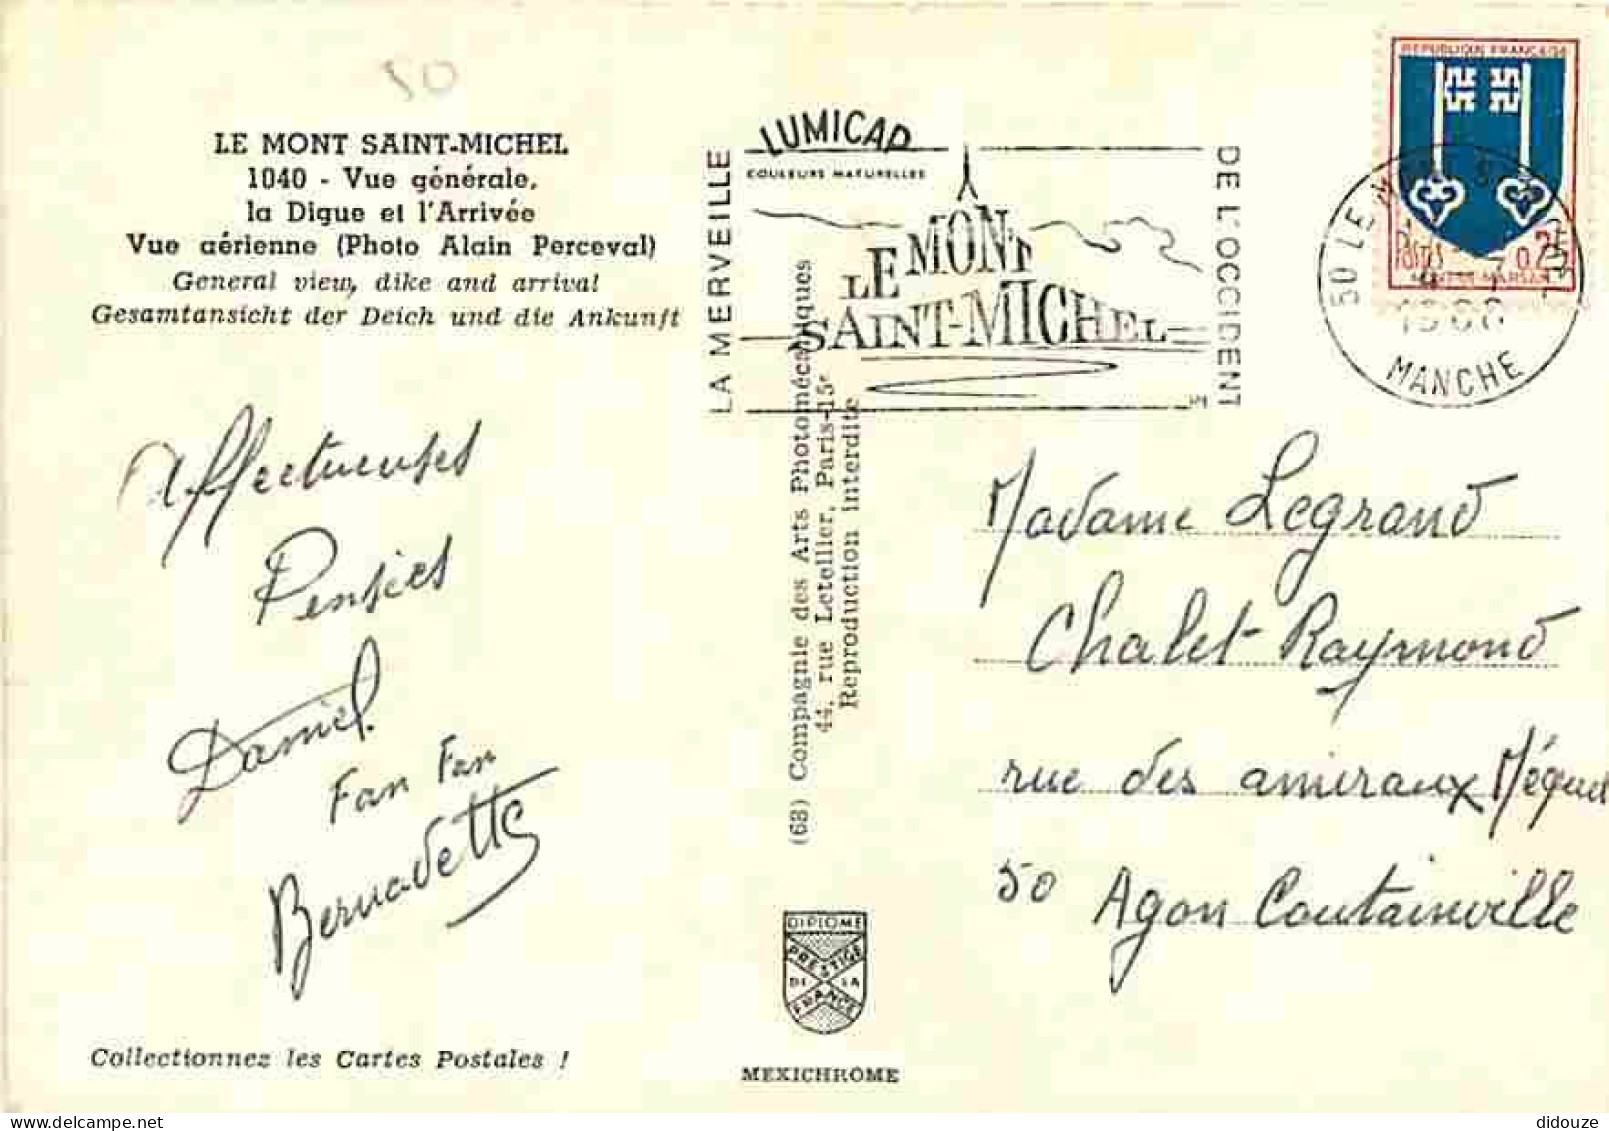 50
LE MONT SAINT-MICHEL
1040 - Vue générale,
la Digue et l'Arrivée
Vue aérienne (Photo Alain Perceval)
General view, dike and arrival
Gesamtansicht der Deich und die Ankunft
Affectueuses
Pensées
Daniel
Fan Fan
Bernadette
Collectionnez les Cartes Postales !
LUMICAP
COULEURS NATURELLES
LA MERVEILLE
LE MONT
SAINT-MICHEL
DE L'OCCIDENT
(68) Compagnie des Arts Photomécaniques
44, rue Letellier, Paris-15e
Reproduction interdite
DIPLOME
PRESTIGE
DE LA
FRANCE
MEXICHROME
REPUBLIQUE FRANÇAISE
POSTES
MONT-DE-MARSAN
50 LE
MANCHE
Madame Legrand
Chalet Raymond
rue des amiraux
50 Agon Coutainville
didouze